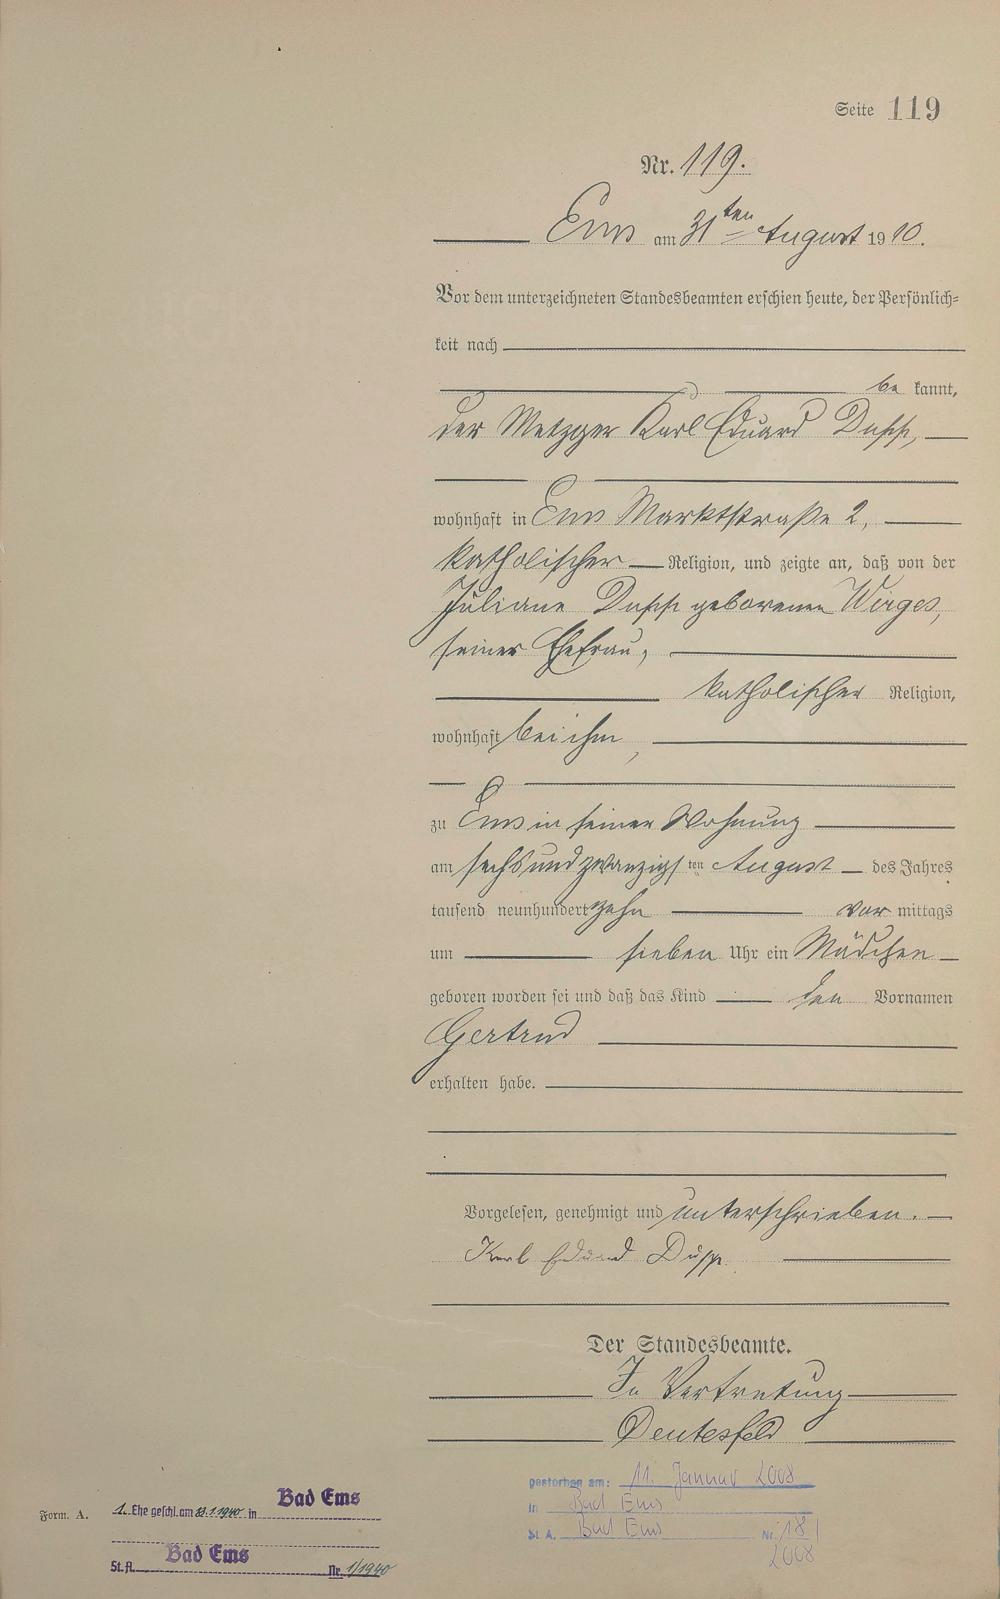 Seite 119
Nr. 119.
Ems am 31ten August 1910.
Vor dem unterzeichneten Standesbeamten erschien heute, der Persönlich-
keit nach
bekannt,
der Metzger Karl Eduard
wohnhaft in Ems Marktstraße 2,
katholischer Religion, und zeigte an, daß von der
Juliane geborenen Wirges,
seiner Ehefrau,
katholischer Religion,
wohnhaft bei ihm,
zu Ems in seiner Wohnung
am sechsundzwanzigsten August des Jahres
tausend neunhundert zehn vormittags
um sieben Uhr ein Mädchen
geboren worden sei und daß das Kind den Vornamen
Gertrud
erhalten habe.
Vorgelesen, genehmigt und unterschrieben.
Karl Eduard
Der Standesbeamte.
In Vertretung
gestorben am: 11. Januar 2008
in Bad Ems
St. A. Bad Ems Nr. 18/
2008
Form. A.
1. Ehe geschl. am 13.1.1940 in Bad Ems
St. A. Bad Ems Nr. 1/1940